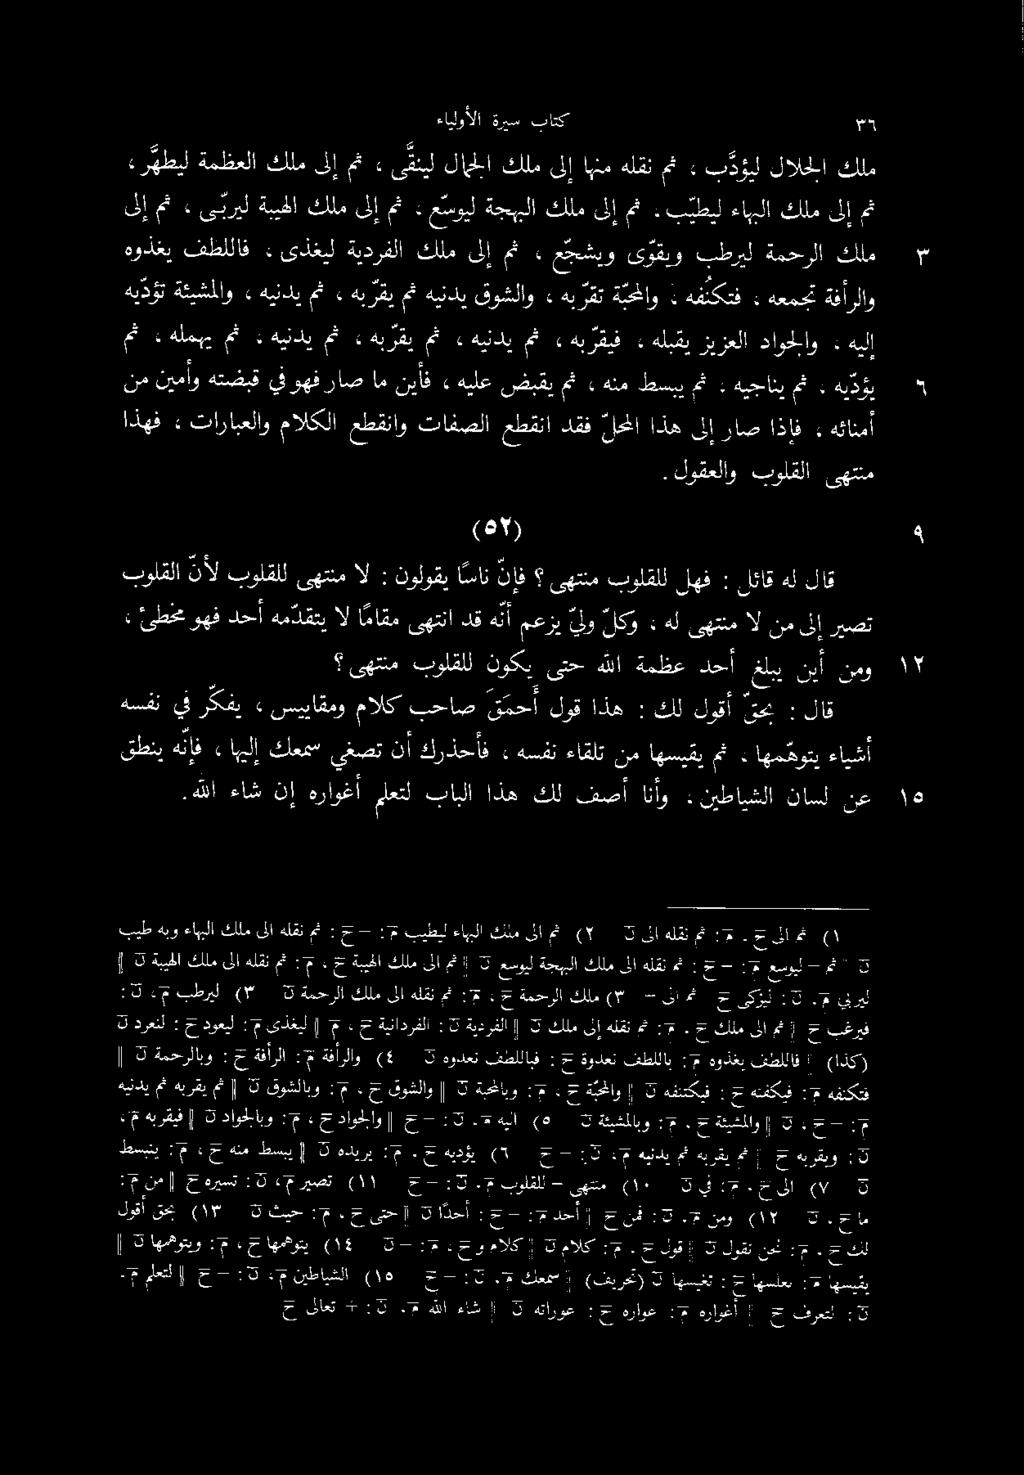 ٣٦ كتاب سيرة الأولياء
ملك الجلال ليؤدَّب ، ثم نقله منها إلى ملك الجمال لينقَّى ، ثم إلى ملك العظمة ليطهَّر ،
ثم إلى ملك البهاء ليطيَّب ، ثم إلى ملك البهجة ليوسَّع ، ثم إلى ملك الهيبة ليربَّى ، ثم إلى
٣ ملك الرحمة ليرطب ويقوّى ويشجّع ، ثم إلى ملك الفردية ليغذى ، فاللطف يغذوه
والرأفة تجمعه ، فتكنُفه ، والمحبّة تقرّبه ، والشوق يدنيه ثم يقرّبه ، ثم يدنيه ، والمشيئة تؤدّيه
إليه ، والجواد العزيز يقبله ، فيقرّبه ، ثم يدنيه ، ثم يقرّبه ، ثم يدنيه ، ثم يمهله ، ثم
٦ يؤدّيه ، ثم يناجيه ، ثم يبسط منه ، ثم يقبض عليه ، فأين ما صار فهو في قبضته وأمين من
أمنائه ، فإذا صار إلى هذا المحلّ فقد انقطع الصفات وانقطع الكلام والعبارات ، فهذا
منتهى القلوب والعقول .
٩ (٥٢)
قال له قائل : فهل للقلوب منتهى ؟ فإنّ ناسًا يقولون : لا منتهى للقلوب لأنّ القلوب
تصير إلى من لا منتهى له ، وكلّ وليّ يزعم أنّه قد انتهى مقامًا لا يتقدّمه أحد فهو مخطئ ،
١٢ ومن أين يبلغ أحد عظمة الله حتى يكون للقلوب منتهى ؟
قال : بحقّ أقول لك : هذا قول أَحمَقَ صاحب كلام ومقاييس ، يفكّر في نفسه
أشياء يتوهّمها ، ثم يقيسها من تلقاء نفسه ، فأحذرك أن تصغي سمعك إليها ، فإنّه ينطق
١٥ عن لسان الشياطين ، وأنا أصف لك هذا الباب لتعلم أغواره إن شاء الله .
١) ثم الى ح ، م : ثم نقله الى ن ٢) ثم الى ملك البهاء ليطيب م : – ح : ثم نقله الى ملك البهاء وبه طيب
ن ‖ ثم – ليوسع م : – ح : ثم نقله الى ملك البهجة ليوسع ن ‖ ثم الى ملك الهيبة ح ، م : ثم نقله الى ملك الهيبة ن ‖
ليربي م ، ن : ليزكى ح ‖ ثم الى – ٣) ملك الرحمة ح ، م : ثم نقله الى ملك الرحمة ن ٣) ليرطب م ، ن :
فيرغب ح ‖ ثم الى ملك ح ، م : ثم نقله إلى ملك ن ‖ الفردية ن : الفردانية ح ، م ‖ ليغذى م : ليعود ح : لنعرد ن
(كذا) ‖ فاللطف يغذوه م : باللطف نعدوه ح : فباللطف نعودوه ن ٤) والرأفة م : الرأفة ح : وبالرحمة ن ‖
فتكنفه م : فيكفنه ح : فيكتنفه ن ‖ والمحبّة ح ، م : وبالمحبة ن ‖ والشوق ح ، م : وبالشوق ن ‖ ثم يقربه ثم يدنيه
م : – ح ، ن ‖ والمشيئة ح ، م : وبالمشيئة ن ٥) اليه م ، ن : – ح ‖ والجواد ح ، م : وبالجواد ن ‖ فيقربه م ،
ن : ويقربه ح ‖ ثم يقربه ثم يدنيه م ، ن : – ح ٦) يؤديه ح ، م : يريده ن ‖ يبسط منه ح ، م : ينبسط
ن ٧) الى ح ، م : في ن ١٠) منتهى – للقلوب م ، ن : – ح ١١) تصير م ، ن : تسيره ح ‖ من م :
ما ح ، ن ١٢) ومن م ، ن : فمن ح ‖ أحد م : – ح : أحدًا ن ‖ حتى ح ، م : حيث ن ١٣) بحق أقول
لك ح ، م : نحن نقول ن ‖ قول ح ، م : كلام ن ‖ كلام و ح ، م : – ن ١٤) يتوهمها ح ، م : ويتوهمها ن ‖
يقيسها م : بعلسها ح : تغيسها ن (تحريف) ‖ سمعك م ، ن : – ح ١٥) الشياطين م ، ن : – ح ‖ لتعلم م ،
ن : لتعرف ح ‖ أغواره م : عواره ح : عوراته ن ‖ شاء الله م ، ن : + تعالى ح